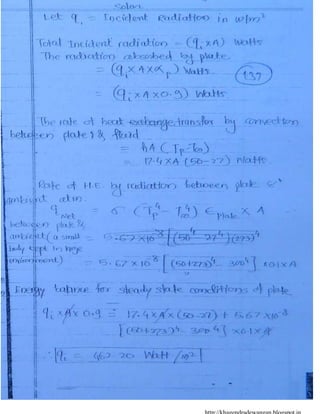 Soln.
Let qi = Incident Radiation in W/m²
Total Incident radiation = (qi x A) Watts
The radiation absorbed by plate
= (qi x A x αp) Watts. 137
= (qi x A x 0.9) Watts
The rate of heat exchange transfer by convection
between plate & fluid
= hA (Tp - T∞)
= 17.4 x A (50-27) Watts.
Rate of H.E. by radiation between plate &
ambient atm.
q Net = σ (Tp⁴ - T∞⁴) ∈Plate x A
between plate &
ambient (a small
body kept in large
environment)
= 5.67 x 10⁻⁸ [(50+273)⁴ - 300⁴] x 0.1 x A
Energy balance for steady state conditions of plate
qi x A x 0.9 = 17.4 x A x (50-27) + 5.67 x 10⁻⁸
[(50+273)⁴ - 300⁴] x 0.1 x A
∴ qi = 462.20 Watt/m²
http://khagendradewangan.blogspot.in